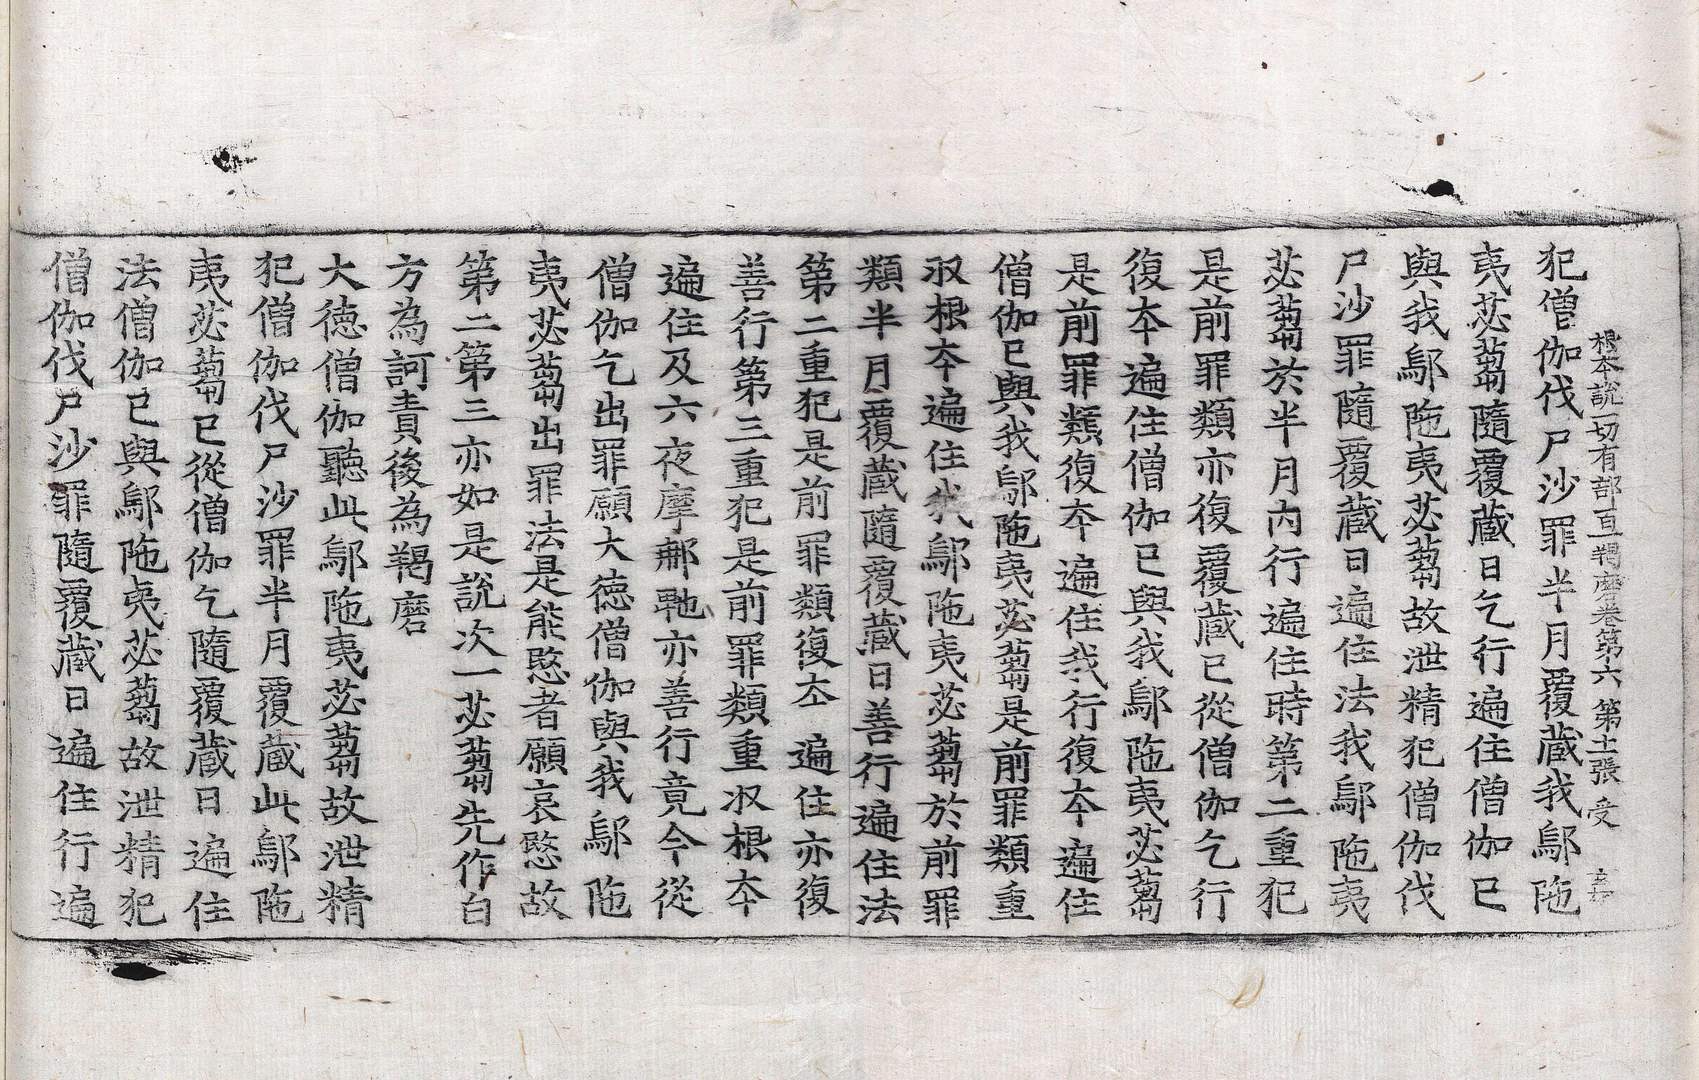 根本說一切有部百一羯磨卷第六 第十二張 受
犯僧伽伐尸沙罪半月覆藏我鄔陁
夷苾蒭隨覆藏日乞行遍住僧伽已
與我鄔陁夷苾蒭故泄精犯僧伽伐
尸沙罪隨覆藏日遍住法我鄔陁夷
苾蒭於半月內行遍住時第二重犯
是前罪類亦復覆藏已從僧伽乞行
復夲遍住僧伽已與我鄔陁夷苾蒭
是前罪類復夲遍住我行復夲遍住
僧伽已與我鄔陁夷苾蒭是前罪類重
収根夲遍住我鄔陁夷苾蒭於前罪
類半月覆藏隨覆藏日善行遍住法
第二重犯是前罪類復夲遍住亦復
善行第三重犯是前罪類重収根夲
遍住及六夜摩𨚗䩭亦善行竟今從
僧伽乞出罪願大德僧伽與我鄔陁
夷苾蒭出罪法是能愍者願哀愍故
第二第三亦如是說次一苾蒭先作白
方為訶責後為羯磨
大德僧伽聽此鄔陁夷苾蒭故泄精
犯僧伽伐尸沙罪半月覆藏此鄔陁
夷苾蒭已從僧伽乞隨覆藏日遍住
法僧伽已與鄔陁夷苾蒭故泄精犯
僧伽伐尸沙罪隨覆藏日遍住行遍